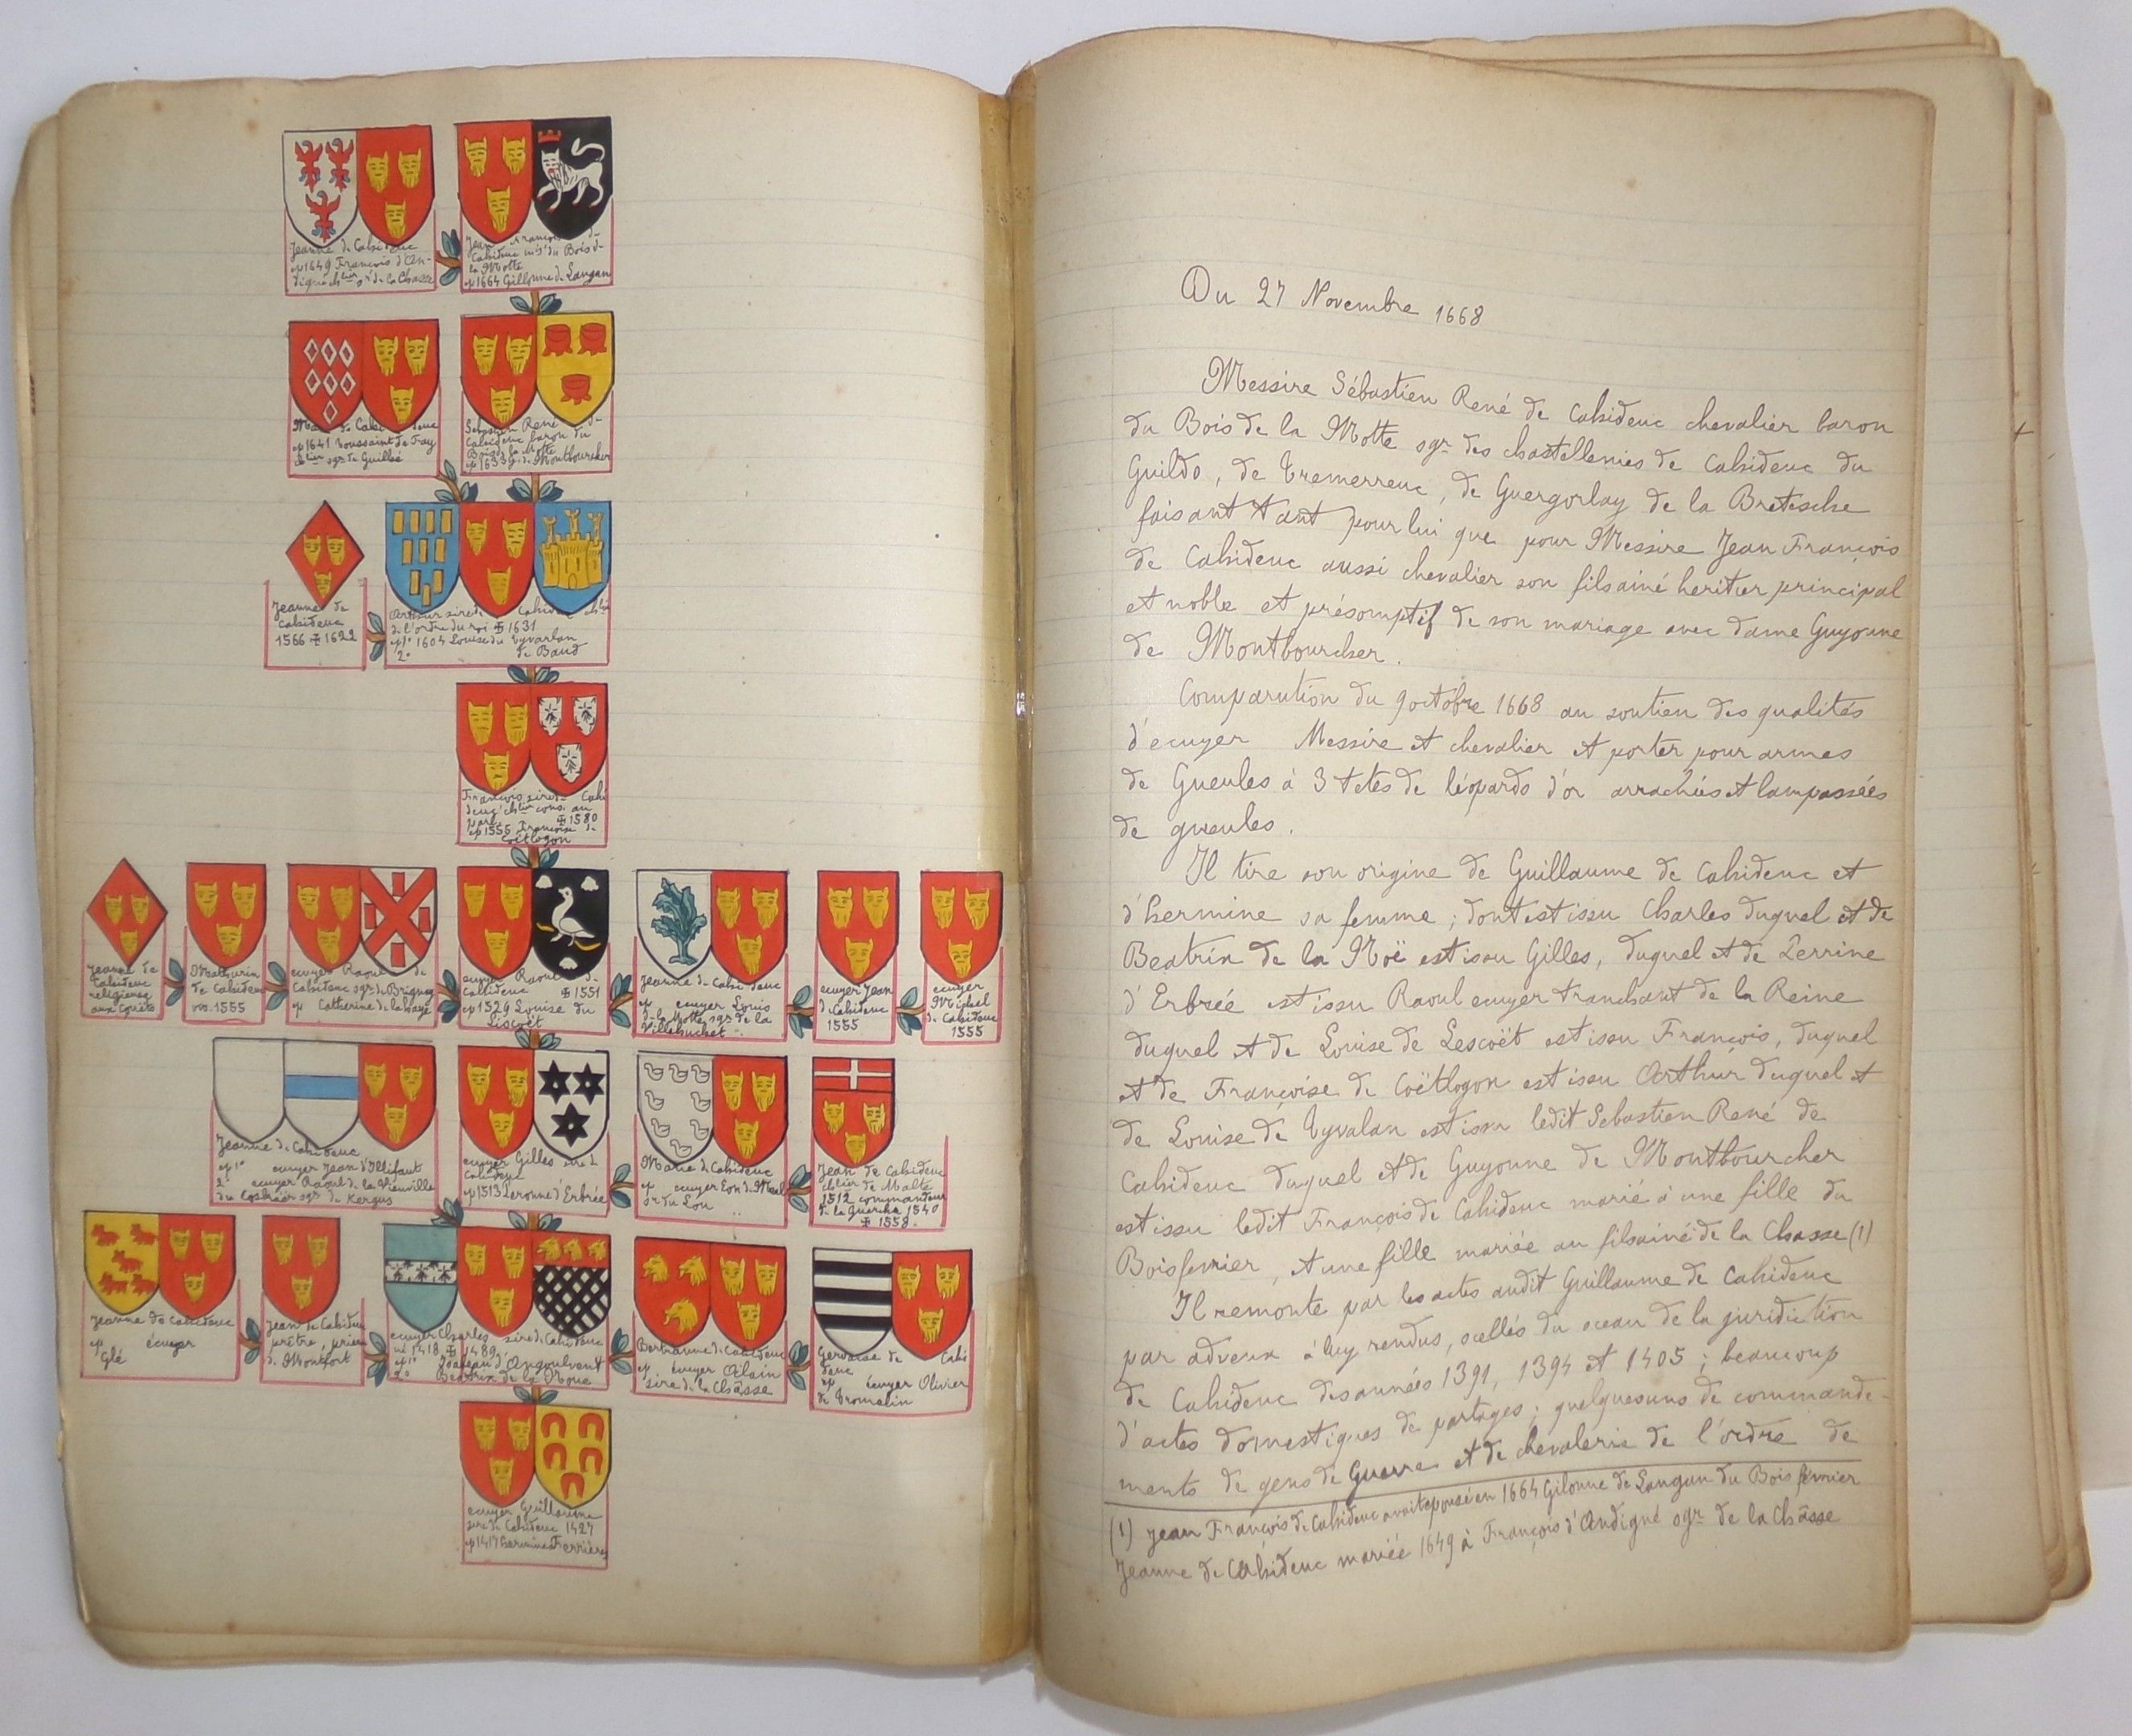 Jeanne de Cahideuc
ep 1649 François d'An-
digné chlier sr de la Chasse
Jean François de
Cahideuc mis du Bois de
la Motte
ep 1664 Gillonne de Langan
ep 1641 Toussaint de Tay
chlier sgr de Guilleé
Sébastien René de
Cahideuc baron du
Bois de la Motte
ep 1633 G. de Montbourcher
Jeanne de
Cahideuc
1566 ✠ 1622
Arthur sire de Cahideuc chlier
de l'ordre du roi ✠ 1631
ep 1° 1604 Louise du Tyvarlan
2° de Baud
François sire de Cahi
deuc chlier cons. au
parl. ✠ 1580
ep 1555 Françoise de
Coëtlogon
Jeanne de
Cahideuc
religieuse
aux Couëts
Mathurin
de Cahideuc
1555
ecuyer Raoul de
Cahideuc sgr de Brignac
ep Catherine de la Haye
ecuyer Raoul de
Cahideuc ✠ 1551
ep 1529 Louise du
Liscoët
Jeanne de Cahideuc
ep ecuyer Louis
de la Motte sgr de la
Villehuchet
ecuyer Jean
de Cahideuc
1555
ecuyer
Michel
de Cahideuc
1555
Jeanne de Cahideuc
ep 1° ecuyer Jean d'Illifaut
2° ecuyer Raoul de la Vieuville
sgr de Kergus
ecuyer Gilles sire de
Cahideuc
ep 1513 Peronne d'Erbrée
Marie de Cahideuc
ep ecuyer Eon de
sr du Lou
Jean de Cahideuc
chlier de Malte
1512 commandeur
de la Guerche 1540
✠ 1558.
Jeanne de Cahideuc
ep écuyer
Glé
Jean de Cahideuc
prêtre prieur
de Montfort
ecuyer Charles sire de Cahideuc
né 1418 ✠ 1489
ep 1° Isabeau d'Angoulvent
2° Beatrix de la Noue
Bertranne de Cahideuc
ep écuyer Alain
sire de la Châsse
Gervaise de Cahi
deuc
ep écuyer Olivier
de Tromelin
ecuyer Guillaume
sire de Cahideuc 1427
ep 1417 hermine Ferrières
Du 27 Novembre 1668
Messire Sébastien René de Cahideuc chevalier baron
du Bois de la Motte sgr des chastellenies de Cahideuc du
Guildo, de Tremerreuc, de Guergorlay de la Bretesche
faisant tant pour lui que pour Messire Jean François
de Cahideuc aussi chevalier son fils ainé heritier principal
et noble et présomptif de son mariage avec dame Guyonne
de Montbourcher.
Comparution du 9 octobre 1668 au soutien des qualités
d'ecuyer Messire et chevalier et porter pour armes
de Gueules à 3 tetes de léopards d'or arrachées et lampassées
de gueules.
Il tire son origine de Guillaume de Cahideuc et
d'hermine sa femme; dont est issu Charles duquel et de
Beatrix de la Noë est issu Gilles, duquel et de Perrine
d'Erbrée est issu Raoul ecuyer tranchant de la Reine
duquel et de Louise de Lescoët est issu François, duquel
et de Françoise de Coëtlogon est issu Arthur duquel et
de Louise de Tyvalan est issu ledit Sebastien René de
Cahideuc duquel et de Guyonne de Montbourcher
est issu ledit François de Cahideuc marié à une fille du
Boisfevrier, et une fille mariée au fils ainé de la Chasse (1)
Il remonte par les actes audit Guillaume de Cahideuc
par adveux à luy rendus, scellés du sceau de la juridiction
de Cahideuc des années 1391, 1394 et 1405; beaucoup
d'actes domestiques de partages; quelquesuns de commande-
ments de gens de Guerre et de chevalerie de l'ordre de
(1) Jean François de Cahideuc avait epousé en 1664 Gilonne de Langan du Bois février
Jeanne de Cahideuc mariée 1649 à François d'Andigné sgr de la Châsse